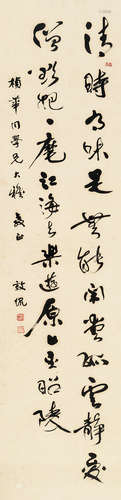 清時有味是無能閒愛孤雲靜愛
僧欲把一麾江海去樂遊原上望昭陵
楨華同學兄大雅教正
敬侃